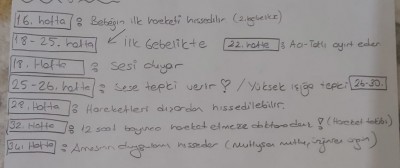 16. hafta : Bebeğin ilk hareketi hissedilir (2. gebelik)
18-25. hafta ↙ ilk Gebelikte 22. hafta : Acı-Tatlı ayırt eder
18. Hafta : Sesi duyar
25-26. hafta : Sese tepki verir / Yüksek ışığa tepki 26-30.
28. Hafta : Hareketleri dışardan hissedilebilir.
32. Hafta : 12 saat boyunca hareket etmezse doktora danış ! (Hareket takibi)
34. Hafta : Annesinin duygularını hisseder (Mutluysan mutlu, üzgünsen üzgün)